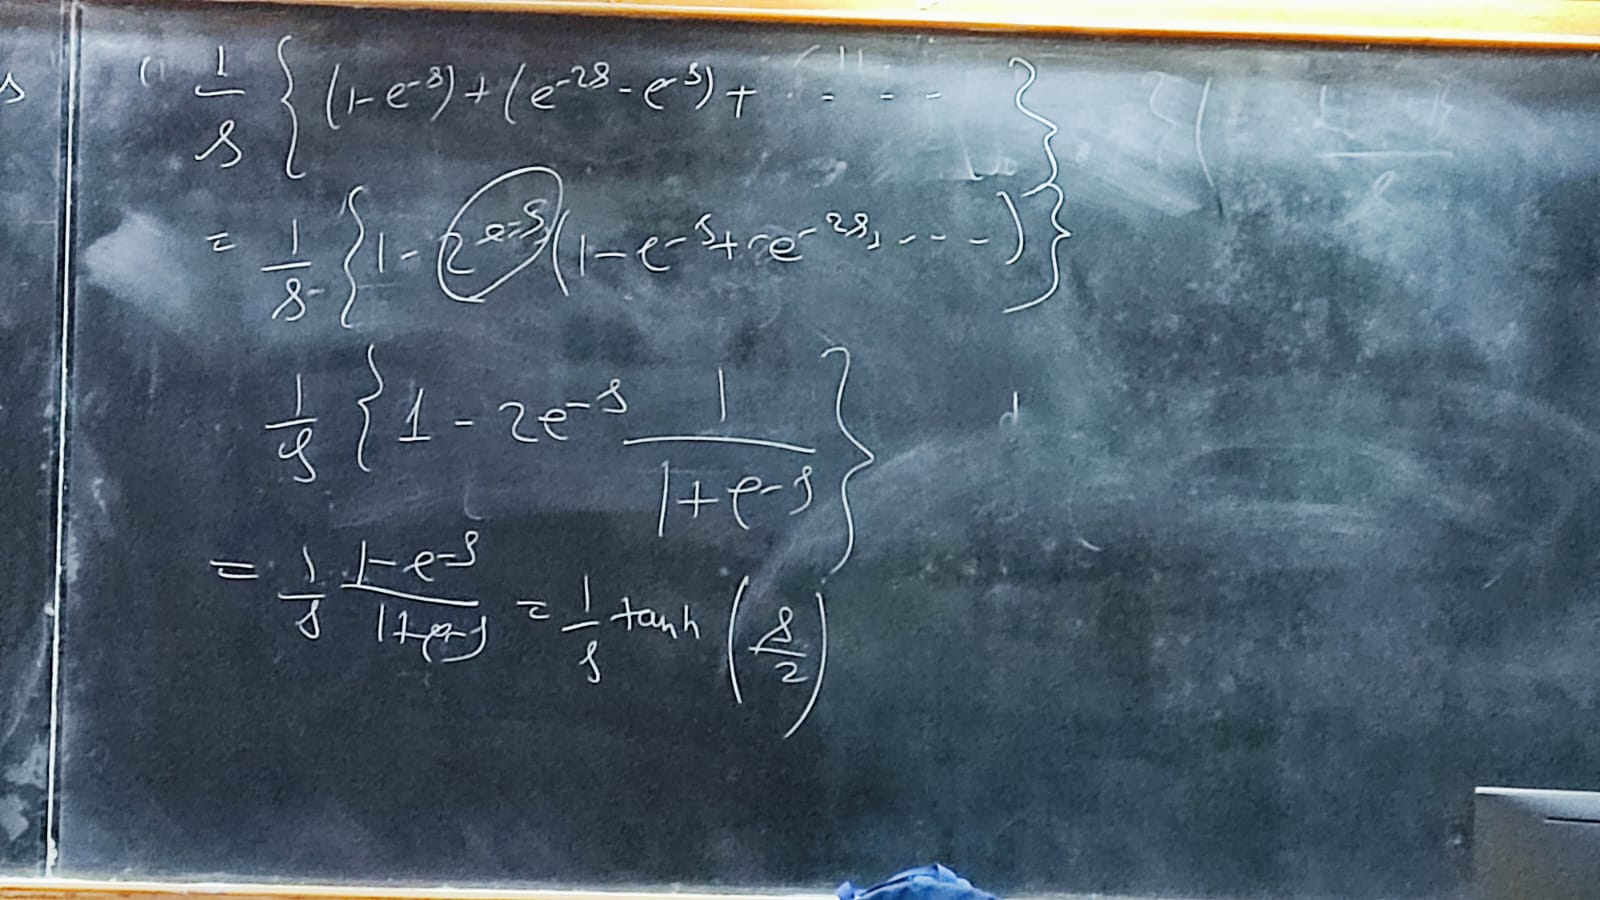 s
1/s { (1-e^-s) + (e^-2s - e^-s) + - - - - }
= 1/s { 1 - 2e^-s (1 - e^-s + e^-2s, - - - ) }
1/s { 1 - 2e^-s 1/(1+e^-s) }
= 1/s (1-e^-s)/(1+e^-s) = 1/s tanh (s/2)